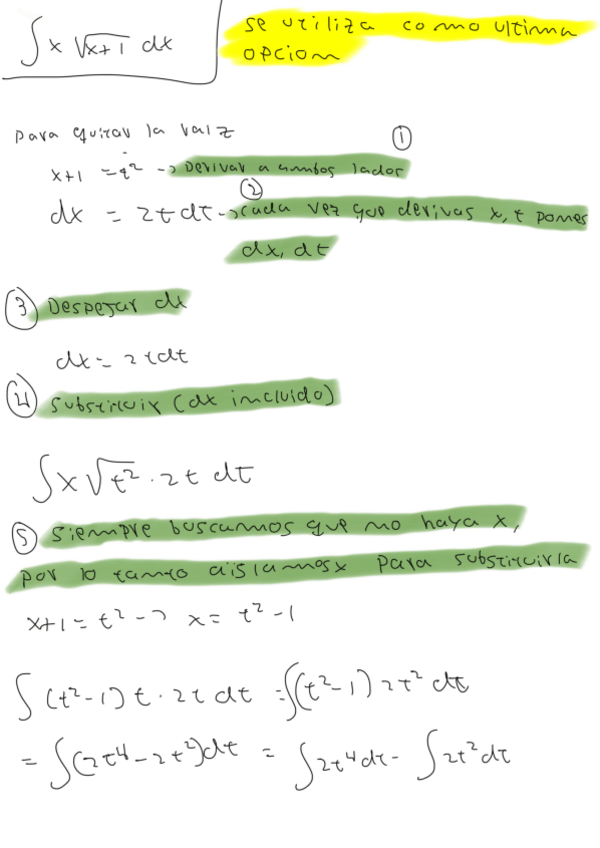 ∫ x √x+1 dx
se utiliza como ultima
opcion
para quitar la raiz
①
x+1 = t² -> Derivar a ambos lados
②
dx = 2t dt -> cada vez que derivas x, t pones
dx, dt
③ Despejar dx
dx = 2t dt
④ substituir (dx incluido)
∫ x √t² · 2t dt
⑤ siempre buscamos que no haya x,
por lo tanto aislamos x para substituirla
x+1 = t² -> x = t² - 1
∫ (t²-1) t · 2t dt = ∫(t²-1) 2t² dt
= ∫(2t⁴ - 2t²)dt = ∫2t⁴dt - ∫2t²dt